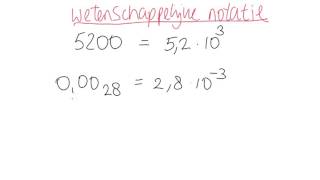 wetenschappelijke notatie
5200 = 5,2 · 10³
0,0028 = 2,8 · 10⁻³